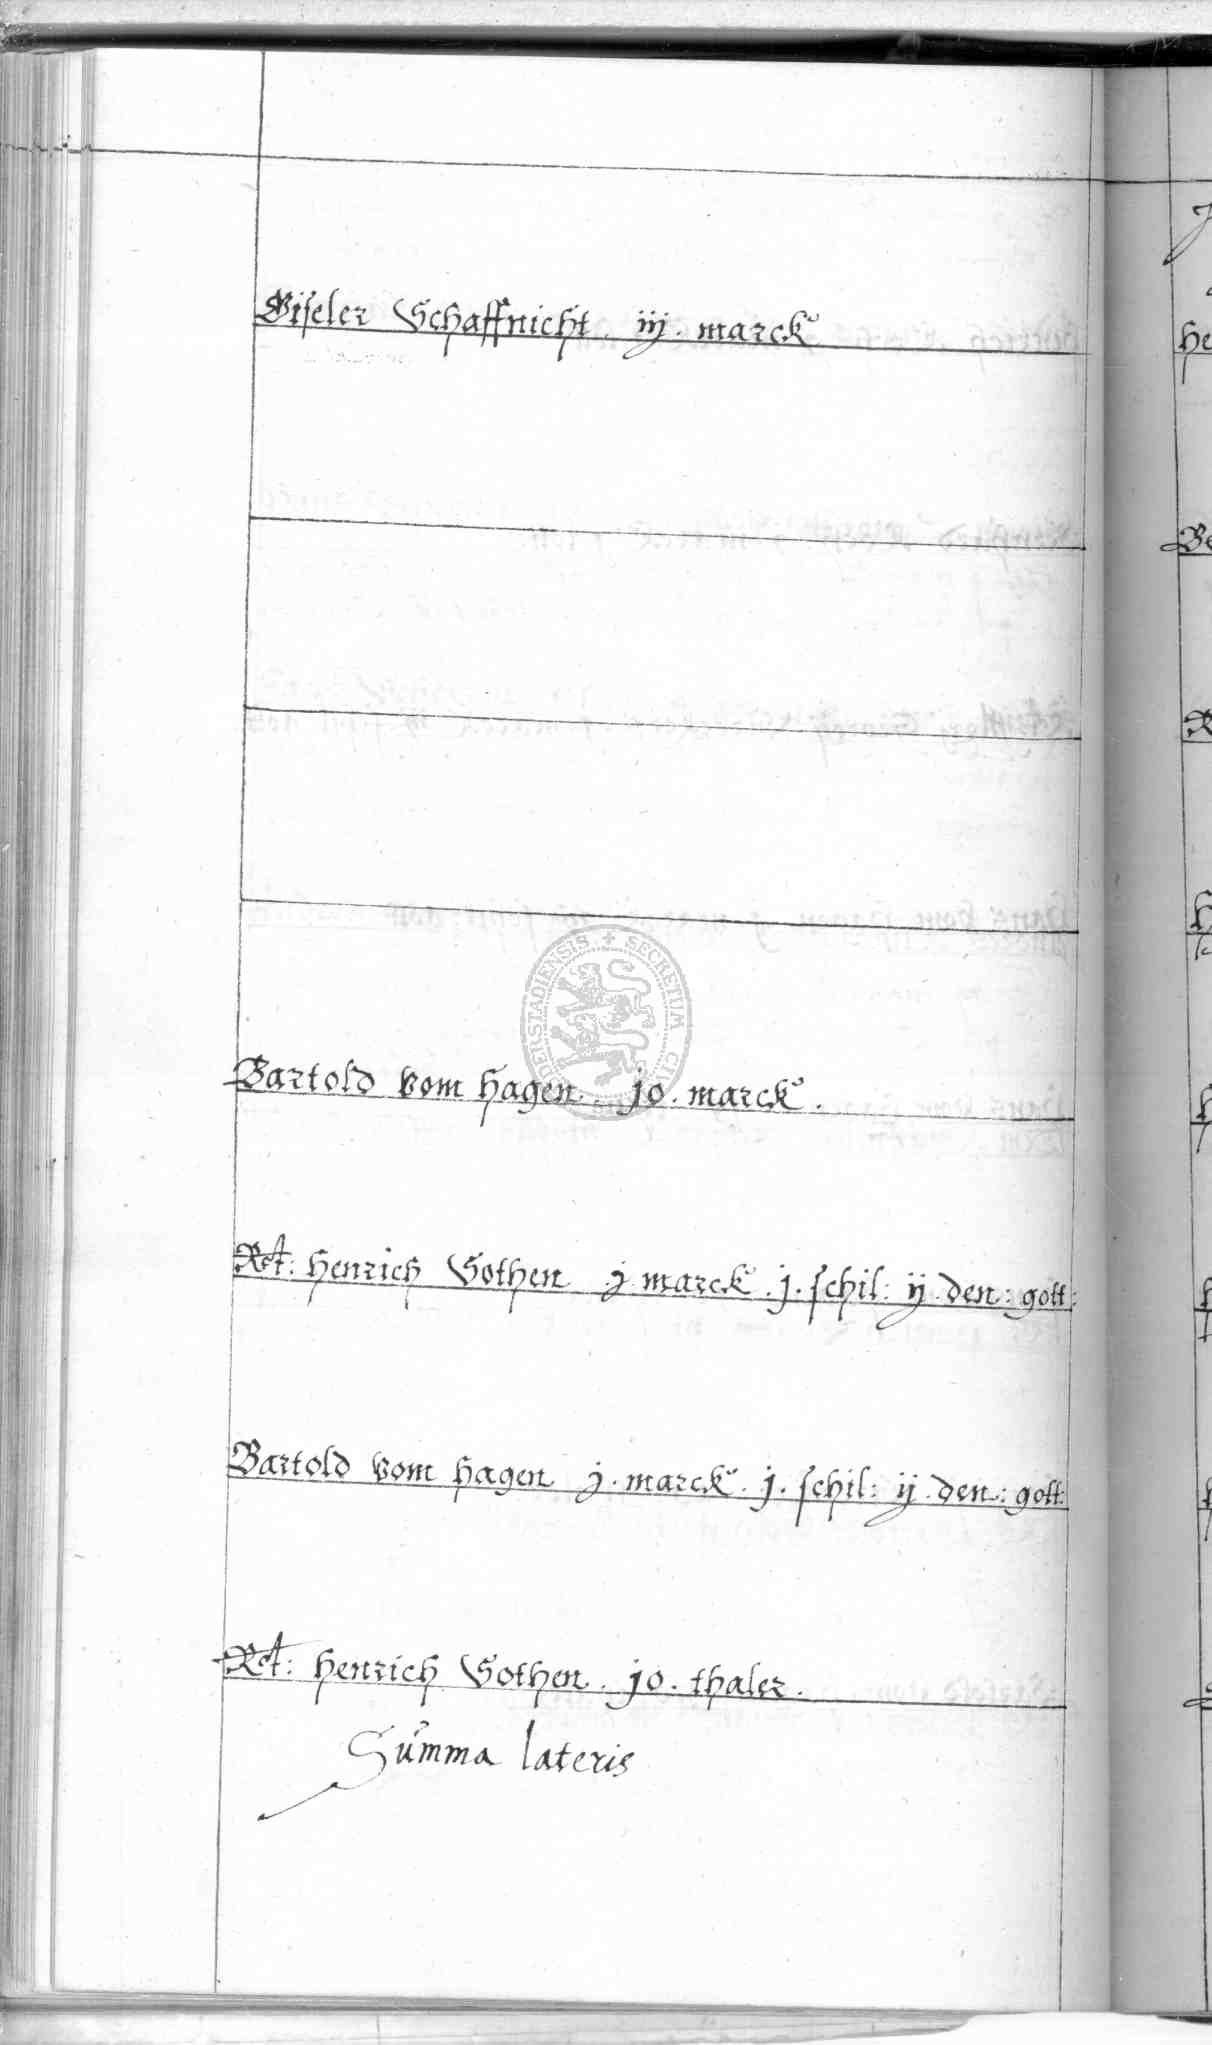 Giseler Schaffnicht iij . marck
Bartold vom Hagen . jo . marck .
Rct : Henrich Gothen . j marck . j . schil : ij . den : gott :
Bartold vom Hagen j . marck . j . schil : ij . den : gott :
Rct : Henrich Gothen . jo . thaler .
Summa lateris
DERSTADIENSIS + SECRETUM CIVI